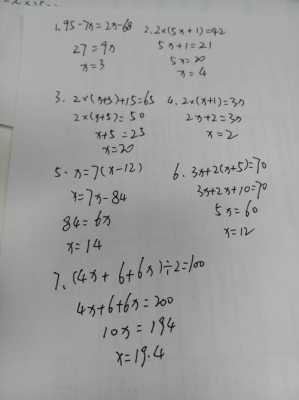 1. 95-7x=2x-68 2. 2×(5x+1)=42
27=9x 5x+1=21
x=3 5x=20
x=4
3. 2×(x+5)+15=65 4. 2×(x+1)=3x
2×(x+5)=50 2x+2=3x
x+5=25 x=2
x=20
5. x=7(x-12) 6. 3x+2(x+5)=70
x=7x-84 3x+2x+10=70
84=6x 5x=60
x=14 x=12
7. (4x+6+6x)÷2=100
4x+6+6x=200
10x=194
x=19.4